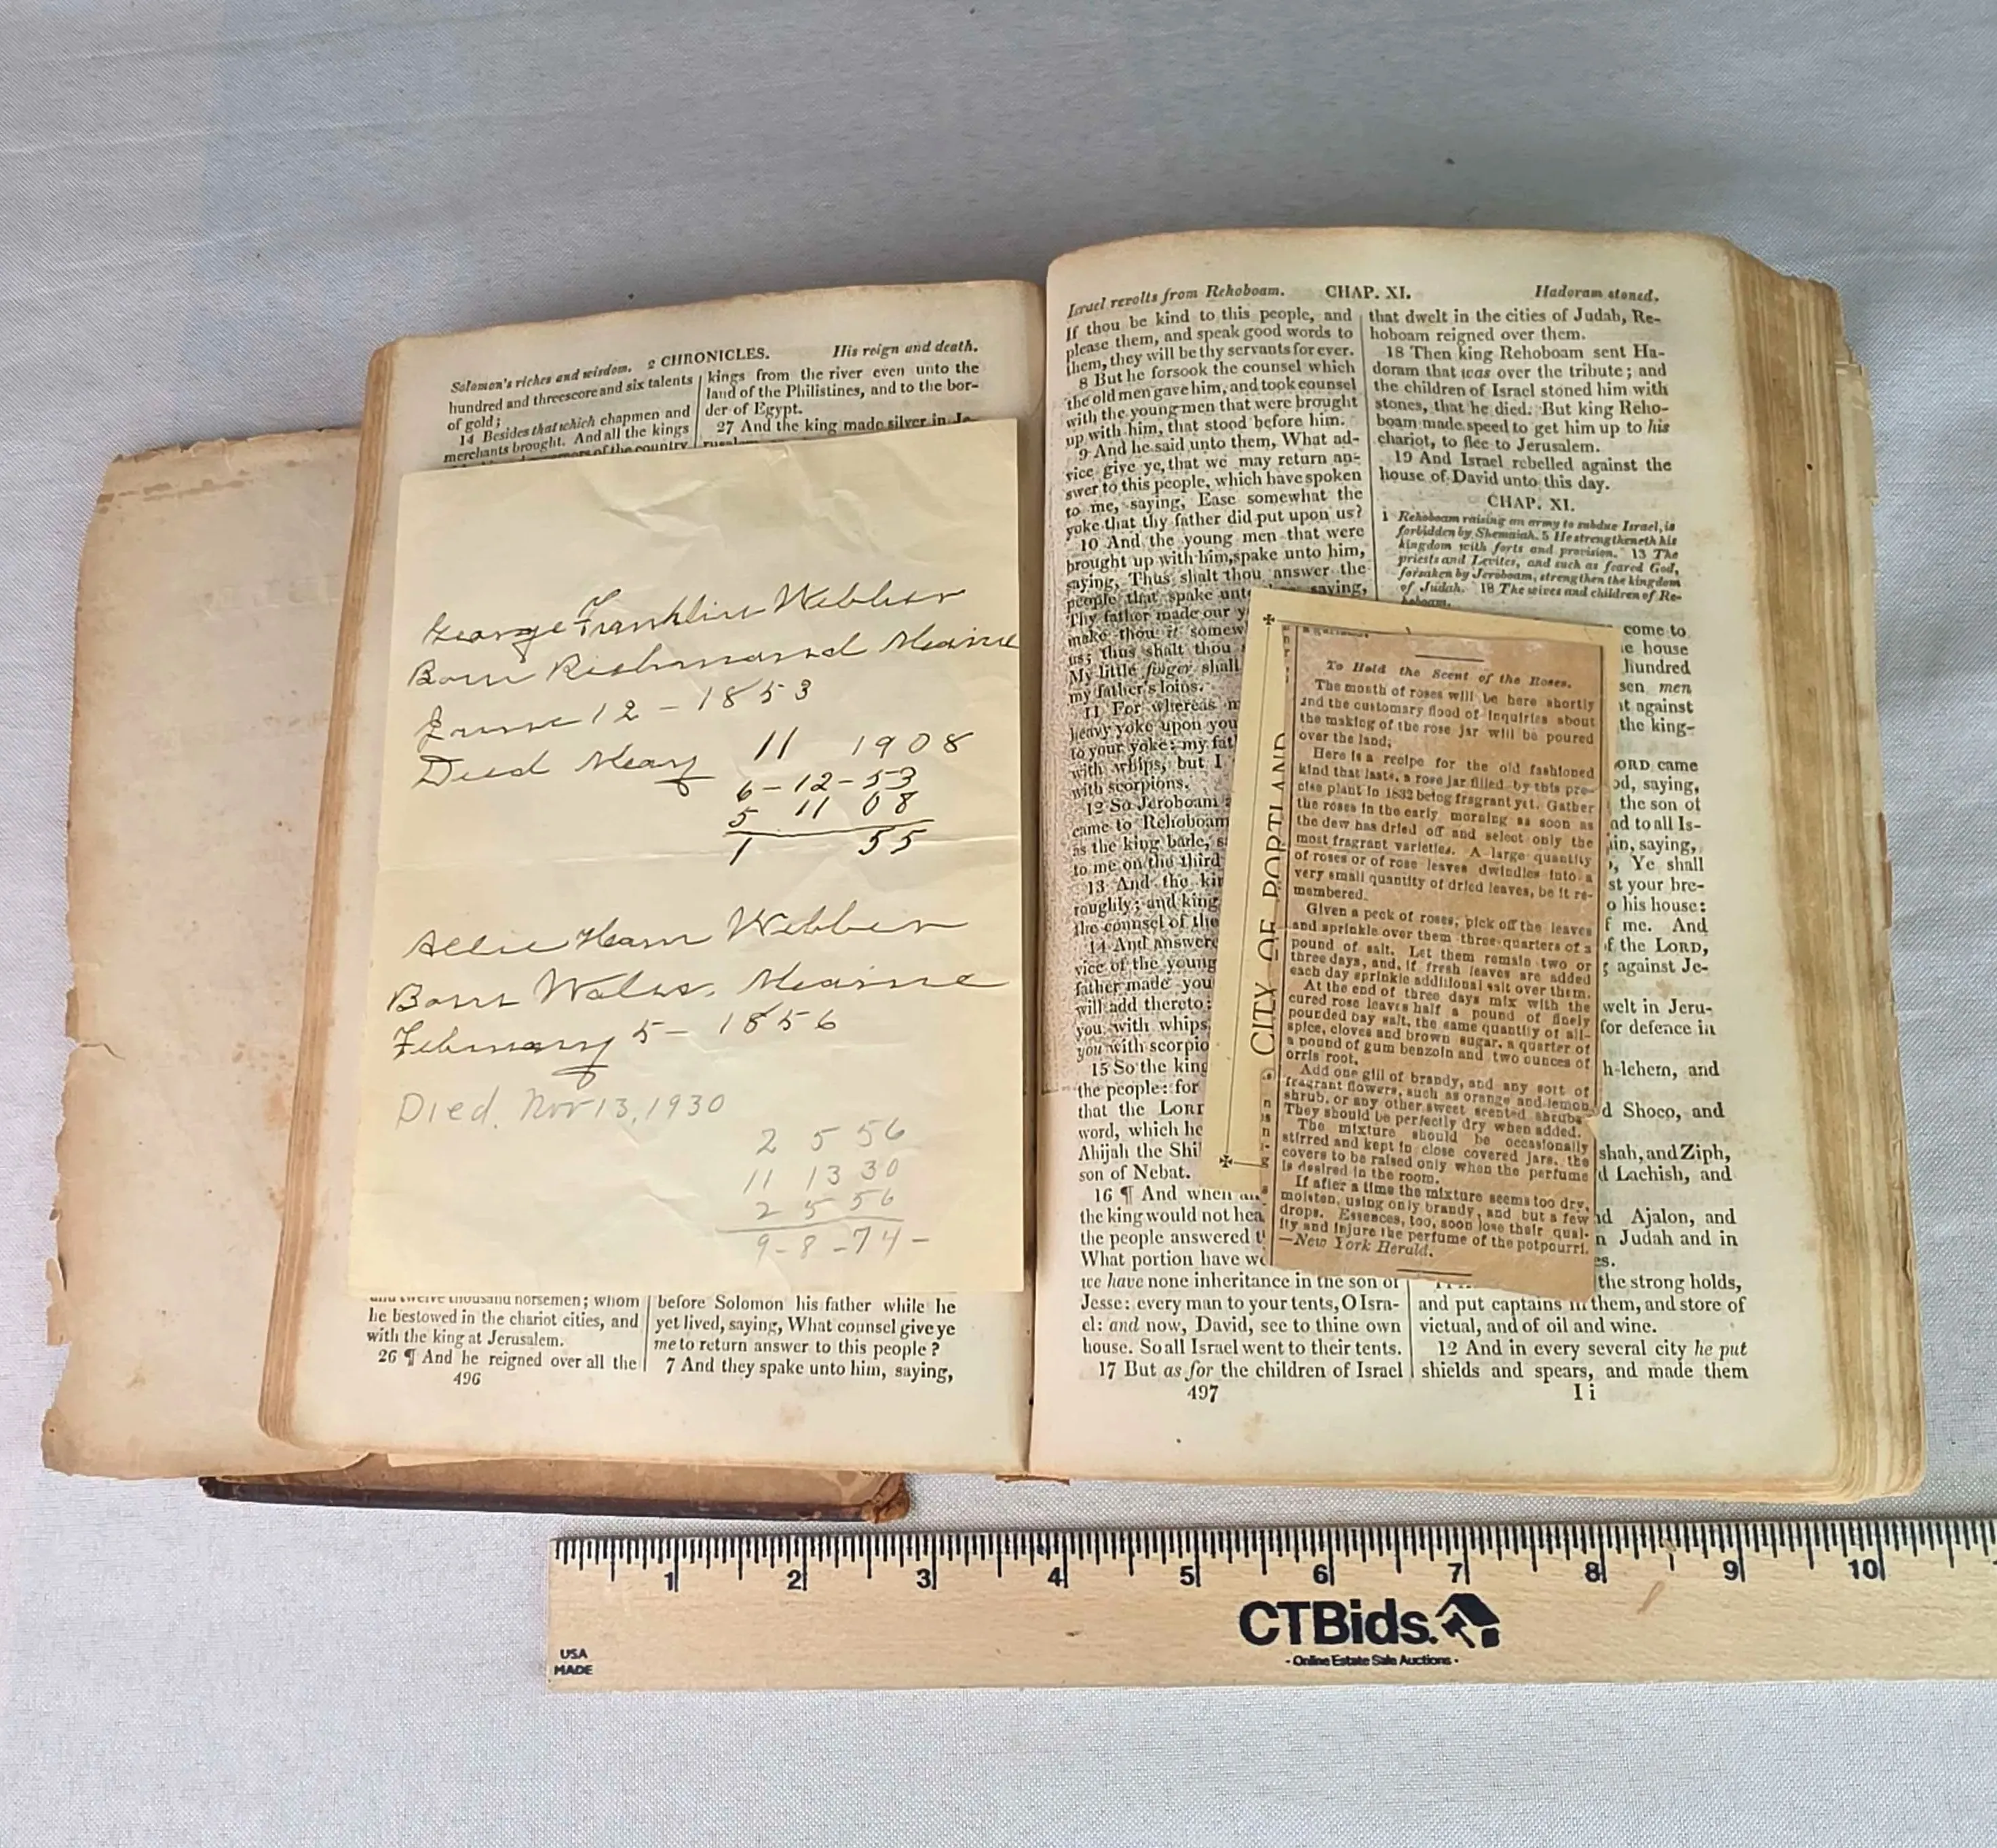 Solomon's riches and wisdom. 2 CHRONICLES. His reign and death.
hundred and threescore and six talents
of gold;
14 Besides that which chapmen and
merchants brought. And all the kings
of the country
kings from the river even unto the
land of the Philistines, and to the bor-
der of Egypt.
27 And the king made silver in Je-
George Franklin Webber
Born Richmond Maine
June 12 - 1853
Died May 11 1908
6-12-53
5 11 08
1 55
Allie Ham Webber
Born Wales. Maine
February 5- 1856
Died. Nov 13, 1930
2 5 56
11 13 30
2 5 56
9-8-74-
and twelve thousand horsemen; whom
he bestowed in the chariot cities, and
with the king at Jerusalem.
26 ¶ And he reigned over all the
496
before Solomon his father while he
yet lived, saying, What counsel give ye
me to return answer to this people?
7 And they spake unto him, saying,
Israel revolts from Rehoboam. CHAP. XI. Hadoram stoned.
If thou be kind to this people, and
please them, and speak good words to
them, they will be thy servants for ever.
8 But he forsook the counsel which
the old men gave him, and took counsel
with the young men that were brought
up with him, that stood before him.
9 And he said unto them, What ad-
vice give ye, that we may return an-
swer to this people, which have spoken
to me, saying, Ease somewhat the
yoke that thy father did put upon us?
10 And the young men that were
brought up with him, spake unto him,
saying, Thus shalt thou answer the
people that spake unto saying,
Thy father made our y
make thou it somew
us; thus shalt thou
My little finger shall
my father's loins.
11 For whereas m
heavy yoke upon you
to your yoke: my fat
with whips, but I
with scorpions.
12 So Jeroboam
came to Rehoboam
as the king bade, s
to me on the third
13 And the kin
roughly; and king
the counsel of the
14 And answere
vice of the young
father made you
will add thereto:
you with whips
you with scorpio
15 So the king
the people: for
that the LORD
word, which he
Ahijah the Shi
son of Nebat.
16 ¶ And when
the king would not hea
the people answered t
What portion have we
we have none inheritance in the son of
Jesse: every man to your tents, O Isra-
el: and now, David, see to thine own
house. So all Israel went to their tents.
17 But as for the children of Israel
497
that dwelt in the cities of Judah, Re-
hoboam reigned over them.
18 Then king Rehoboam sent Ha-
doram that was over the tribute; and
the children of Israel stoned him with
stones, that he died. But king Reho-
boam made speed to get him up to his
chariot, to flee to Jerusalem.
19 And Israel rebelled against the
house of David unto this day.
CHAP. XI.
1 Rehoboam raising an army to subdue Israel, is
forbidden by Shemaiah. 5 He strengtheneth his
kingdom with forts and provision. 13 The
priests and Levites, and such as feared God,
forsaken by Jeroboam, strengthen the kingdom
of Judah. 18 The wives and children of Re-
hoboam.
come to
e house
hundred
sen men
t against
the king-
ORD came
od, saying,
the son of
nd to all Is-
in, saying,
Ye shall
st your bre-
o his house:
f me. And
f the LORD,
against Je-
welt in Jeru-
for defence in
h-lehem, and
d Shoco, and
shah, and Ziph,
d Lachish, and
nd Ajalon, and
n Judah and in
es.
the strong holds,
and put captains in them, and store of
victual, and of oil and wine.
12 And in every several city he put
shields and spears, and made them
I i
CITY OF PORTLAND
To Hold the Scent of the Roses.
The month of roses will be here shortly
and the customary flood of inquiries about
the making of the rose jar will be poured
over the land.
Here is a recipe for the old fashioned
kind that lasts, a rose jar filled by this pre-
cise plant in 1832 being fragrant yet. Gather
the roses in the early morning as soon as
the dew has dried off and select only the
most fragrant varieties. A large quantity
of roses or of rose leaves dwindles into a
very small quantity of dried leaves, be it re-
membered.
Given a peck of roses, pick off the leaves
and sprinkle over them three-quarters of a
pound of salt. Let them remain two or
three days, and, if fresh leaves are added
each day sprinkle additional salt over them.
At the end of three days mix with the
cured rose leaves half a pound of finely
pounded bay salt, the same quantity of all-
spice, cloves and brown sugar, a quarter of
a pound of gum benzoin and two ounces of
orris root.
Add one gill of brandy, and any sort of
fragrant flowers, such as orange and lemon
shrub, or any other sweet scented shrubs.
They should be perfectly dry when added.
The mixture should be occasionally
stirred and kept in close covered jars, the
covers to be raised only when the perfume
is desired in the room.
If after a time the mixture seems too dry,
moisten, using only brandy, and but a few
drops. Essences, too, soon lose their qual-
ity and injure the perfume of the potpourri.
—New York Herald.
1 2 3 4 5 6 7 8 9 10
CTBids.
- Online Estate Sale Auctions -
USA
MADE